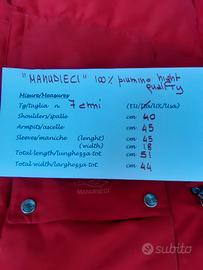 "MANUDIECI" 100% piumino hight quality
Misure/Measures
Tg/taglia n. 7 anni (EU/Ita/UK/Usa)
Shoulders/spalle cm 40
Armpits/ascelle cm 45
Sleeves/maniche (lenght) cm 45
(width) cm 18
Total length/lunghezza tot. cm 51
Total width/larghezza tot. cm 44
MANUDIECI
subito